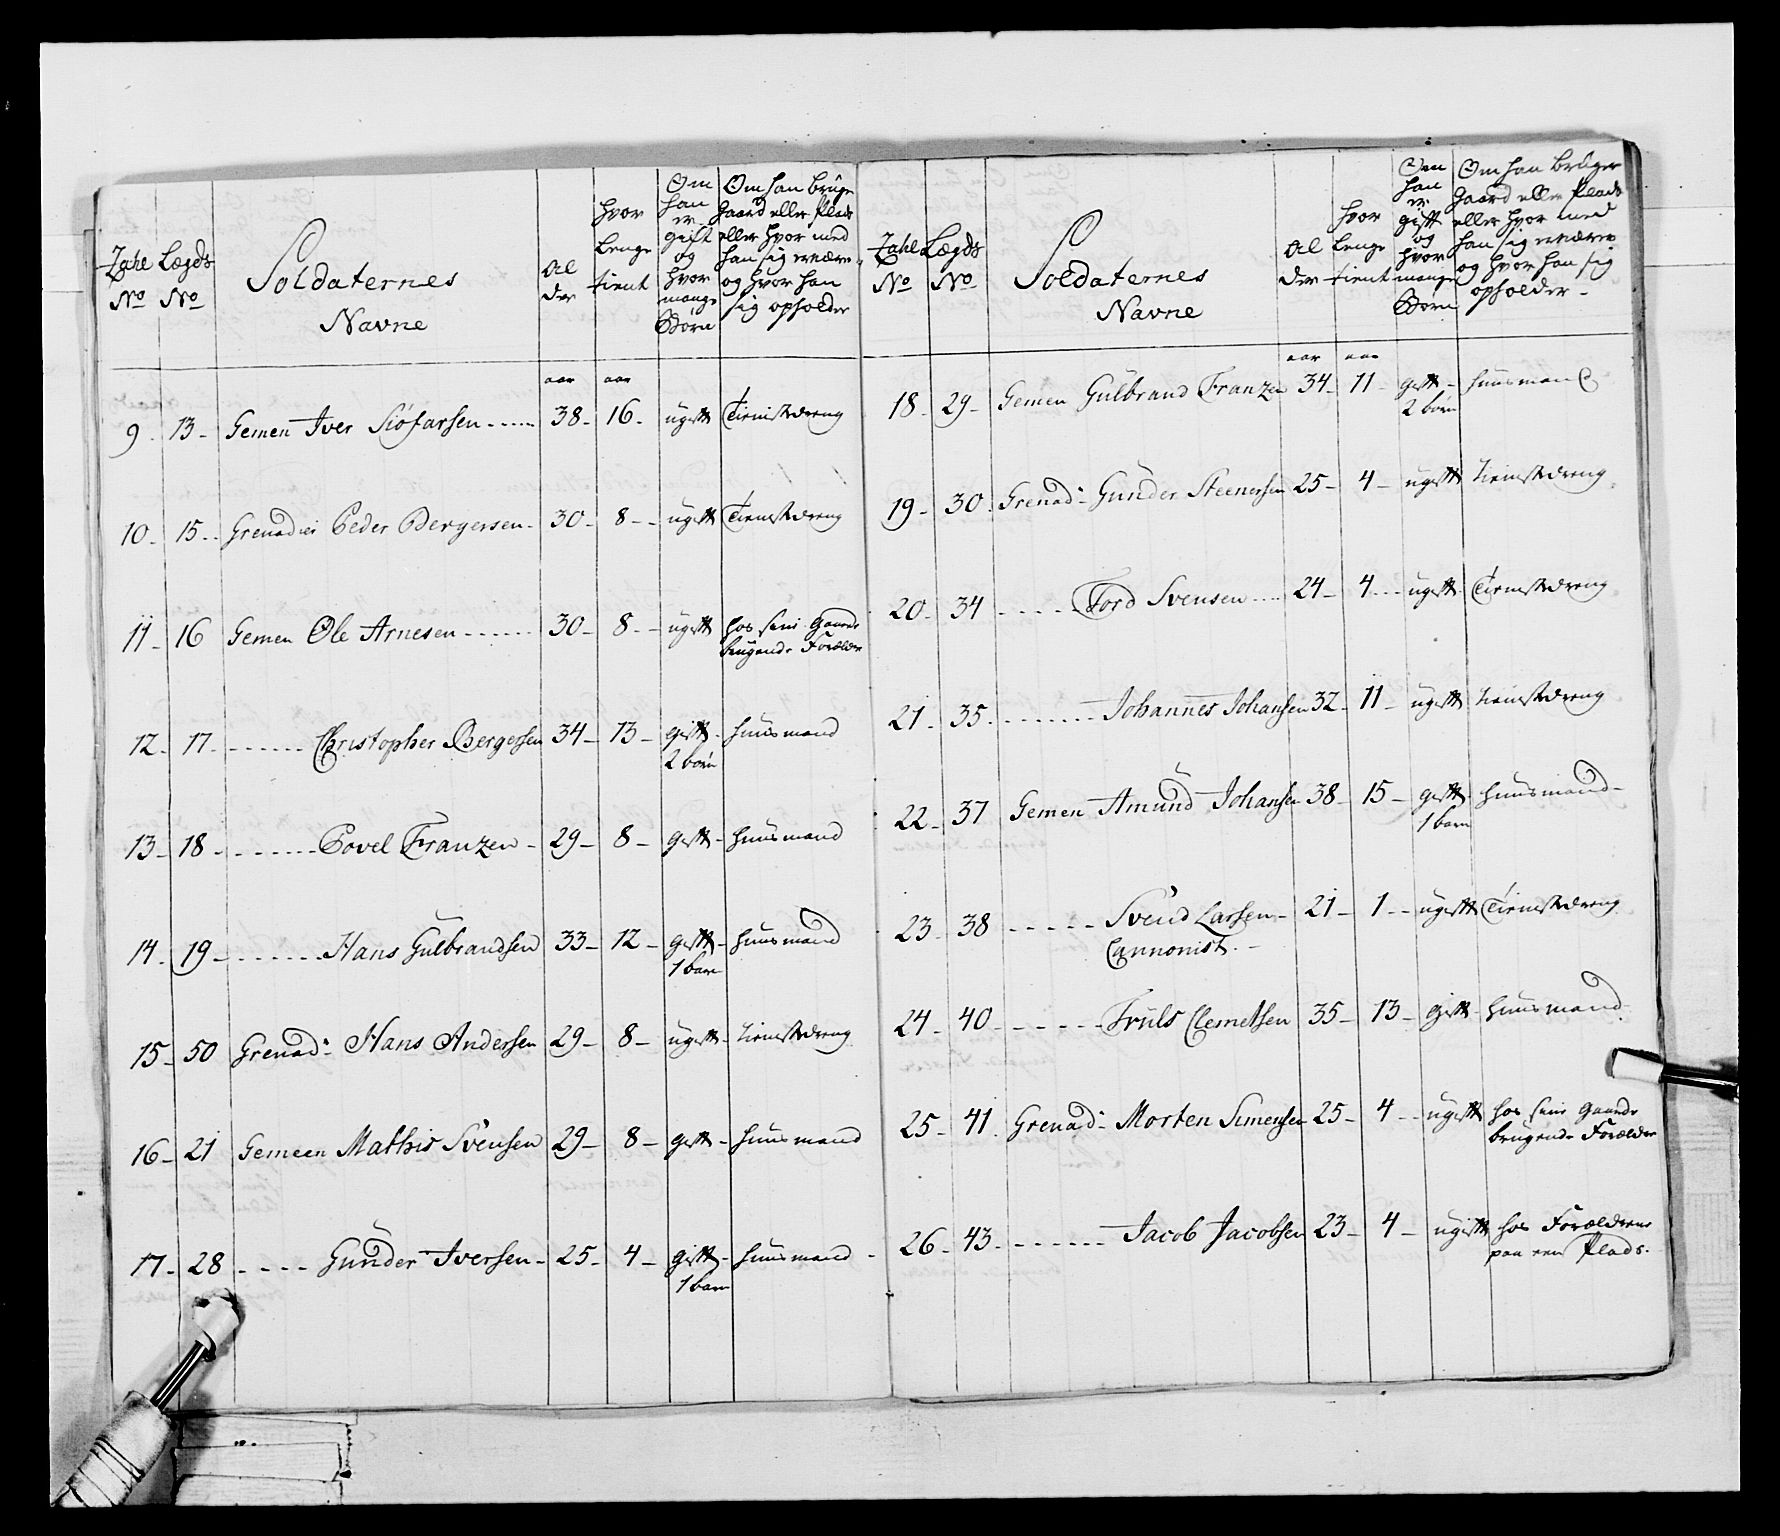 Zahl No
Lægds No
Soldaternes Navne
Alder
hvor lenge tient
Om han er gift og hvor mange Børn
Om han bruge Gaard eller Plads eller hvor med han sig ernære og hvor han sig opholder
aar aar
9. 13- Gemen Iver Siøfarsen ------ 38- 16. ugift Tienistdreng
10- 15.. Grenadier Peder Bergersen- 30- 8-- ugift Tienistdreng
11- 16 Gemen Ole Arnesen ------ 30- 8-- ugift hos sine Gaard
brugende Forældre
12- 17- ------ Christopher Bergersen 34- 13- gift- huusmand
2 børn
13- 18- ------ Povel Franzen- 29- 8- gift- huusmand
14- 19- ------ Hans Gulbrandsen 33- 12- gift- huusmand
1 barn
15- 50 Grenad:- Hans Andersen 29- 8- ugift- tienistdreng
16- 21 Gemeen Mathis Svensen 29- 8- gift- huusmand
17- 28 ---- Gunder Iversen- 25- 4- gift- huusmand-
1 barn
Zahl No
Lægds No
Soldaternes Navne
Alder
hvor lenge tient
Om han er gift og hvor mange Børn
Om han bruger Gaard eller Plads eller hvor med han sig ernære og hvor han sig opholder-
aar aar
18- 29- Gemen Gulbrand Franzen 34- 11- gift- huusmand
2 børn
19- 30. Grenad:- Gunder Steenersen 25- 4- ugift tienistdreng
20- 34 ----- Tord Svensen .... 24- 4--- ugift Tienistdreng
21- 35. ------- Johannes Johansen 32- 11- ugift tienistdreng
22- 37 Gemen Amund Johansen 38- 15- gift- huusmand-
1 barn
23- 38 ----- Svend Larsen- 21- 1-- ugift Tienistdreng
Cannonist.-
24- 40- ----- Truls Clemetsen 35- 13- gift- huusmand-
25- 41. Grenad:- Morten Simensen 25- 4-- ugift hos sine Gaard
brugende Forældre
26- 43- ------ Jacob Jacobsen 23- 4- ugift hos Forældrene
paa een Plads.